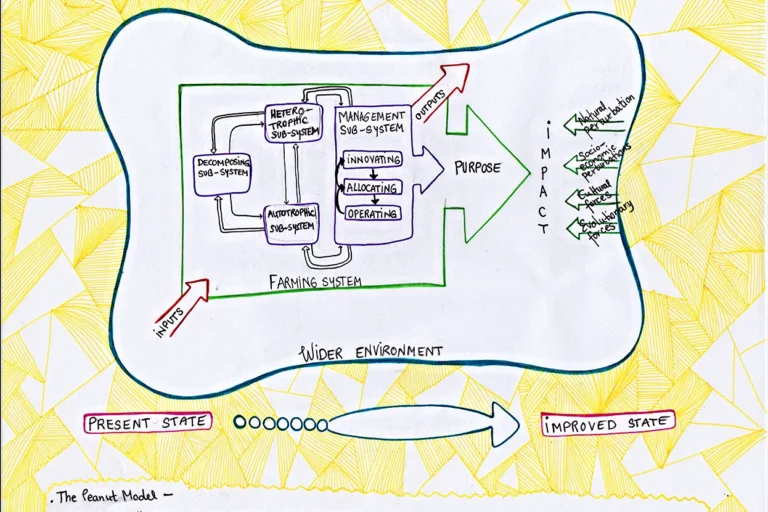 OUTPUTS
HETERO-
TROPHIC
SUB-SYSTEM
MANAGEMENT
SUB-SYSTEM
DECOMPOSING
SUB-SYSTEM
INNOVATING
ALLOCATING
OPERATING
AUTOTROPHIC
SUB-SYSTEM
PURPOSE
iMPACT
Natural
perturbation
Socio-
economic
perturbations
Cultural
forces
Evolutionary
forces
FARMING SYSTEM
iNPUTS
WIDER ENVIRONMENT
PRESENT STATE
iMPROVED STATE
. The Peanut Model –